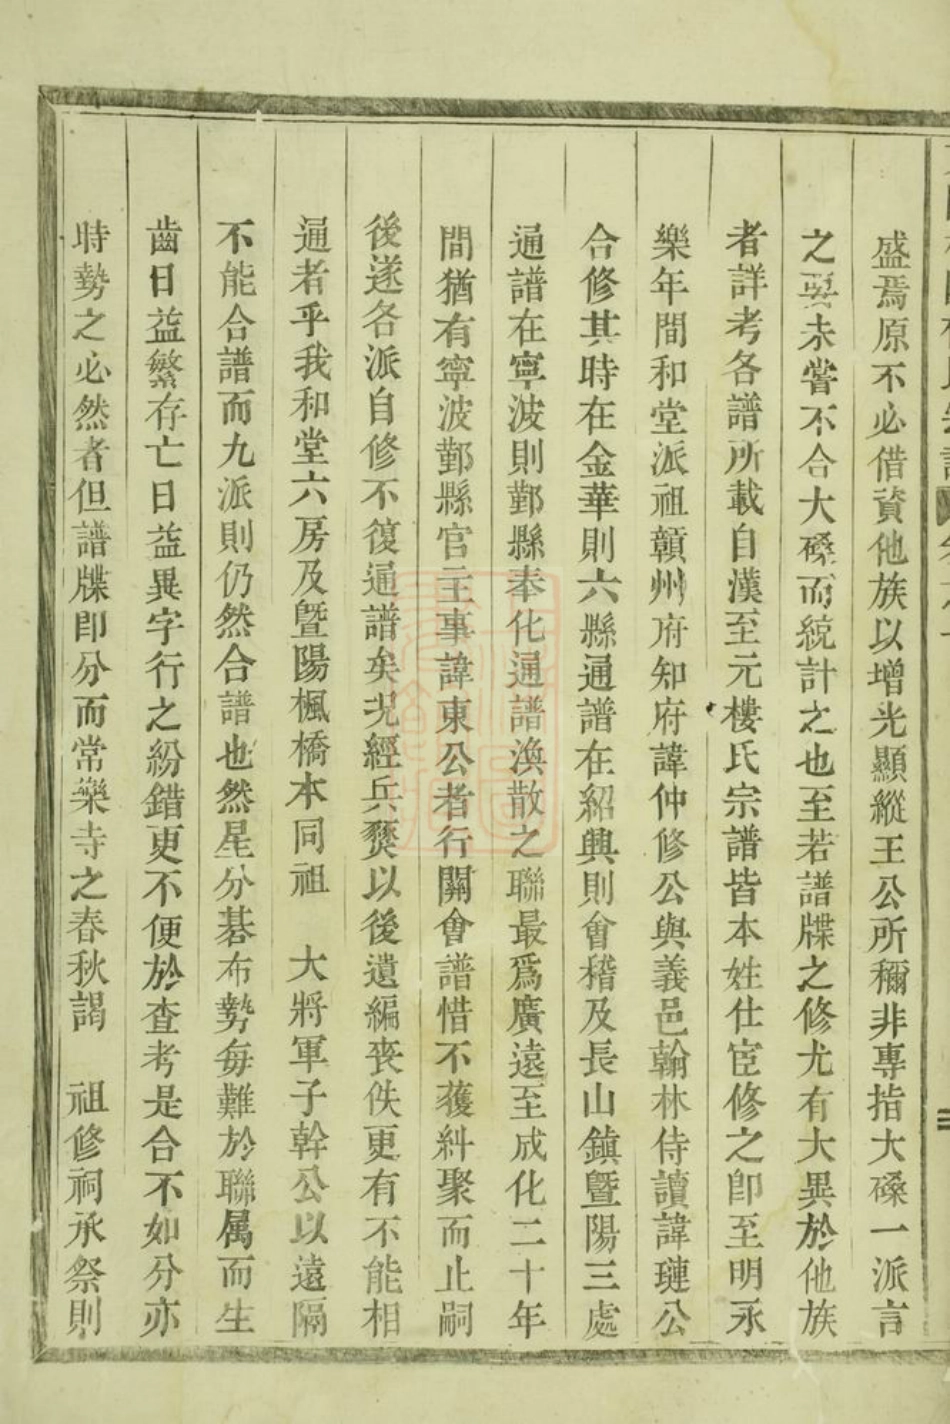 盛焉原不必借資他族以增光顯縱王公所稱非專指大磉一派言
之要未嘗不合大磉而統計之也至若譜牒之修尤有大異於他族
者詳考各譜所載自漢至元樓氏宗譜皆本姓仕宦修之卽至明永
樂年間和堂派祖贛州府知府諱仲修公與義邑翰林侍讀諱璉公
合修其時在金華則六縣通譜在紹興則會稽及長山鎮暨陽三處
通譜在寧波則鄞縣奉化通譜渙散之聯最爲廣遠至成化二十年
間猶有寧波鄞縣官主事諱東公者行關會譜惜不獲糾聚而止嗣
後遂各派自修不復通譜矣況經兵燹以後遺編喪佚更有不能相
通者乎我和堂六房及暨陽楓橋本同祖　大將軍子幹公以遠隔
不能合譜而九派則仍然合譜也然星分碁布勢每難於聯属而生
齒日益繁存亡日益異字行之紛錯更不便於查考是合不如分亦
時勢之必然者但譜牒卽分而常樂寺之春秋謁　祖修祠承祭則